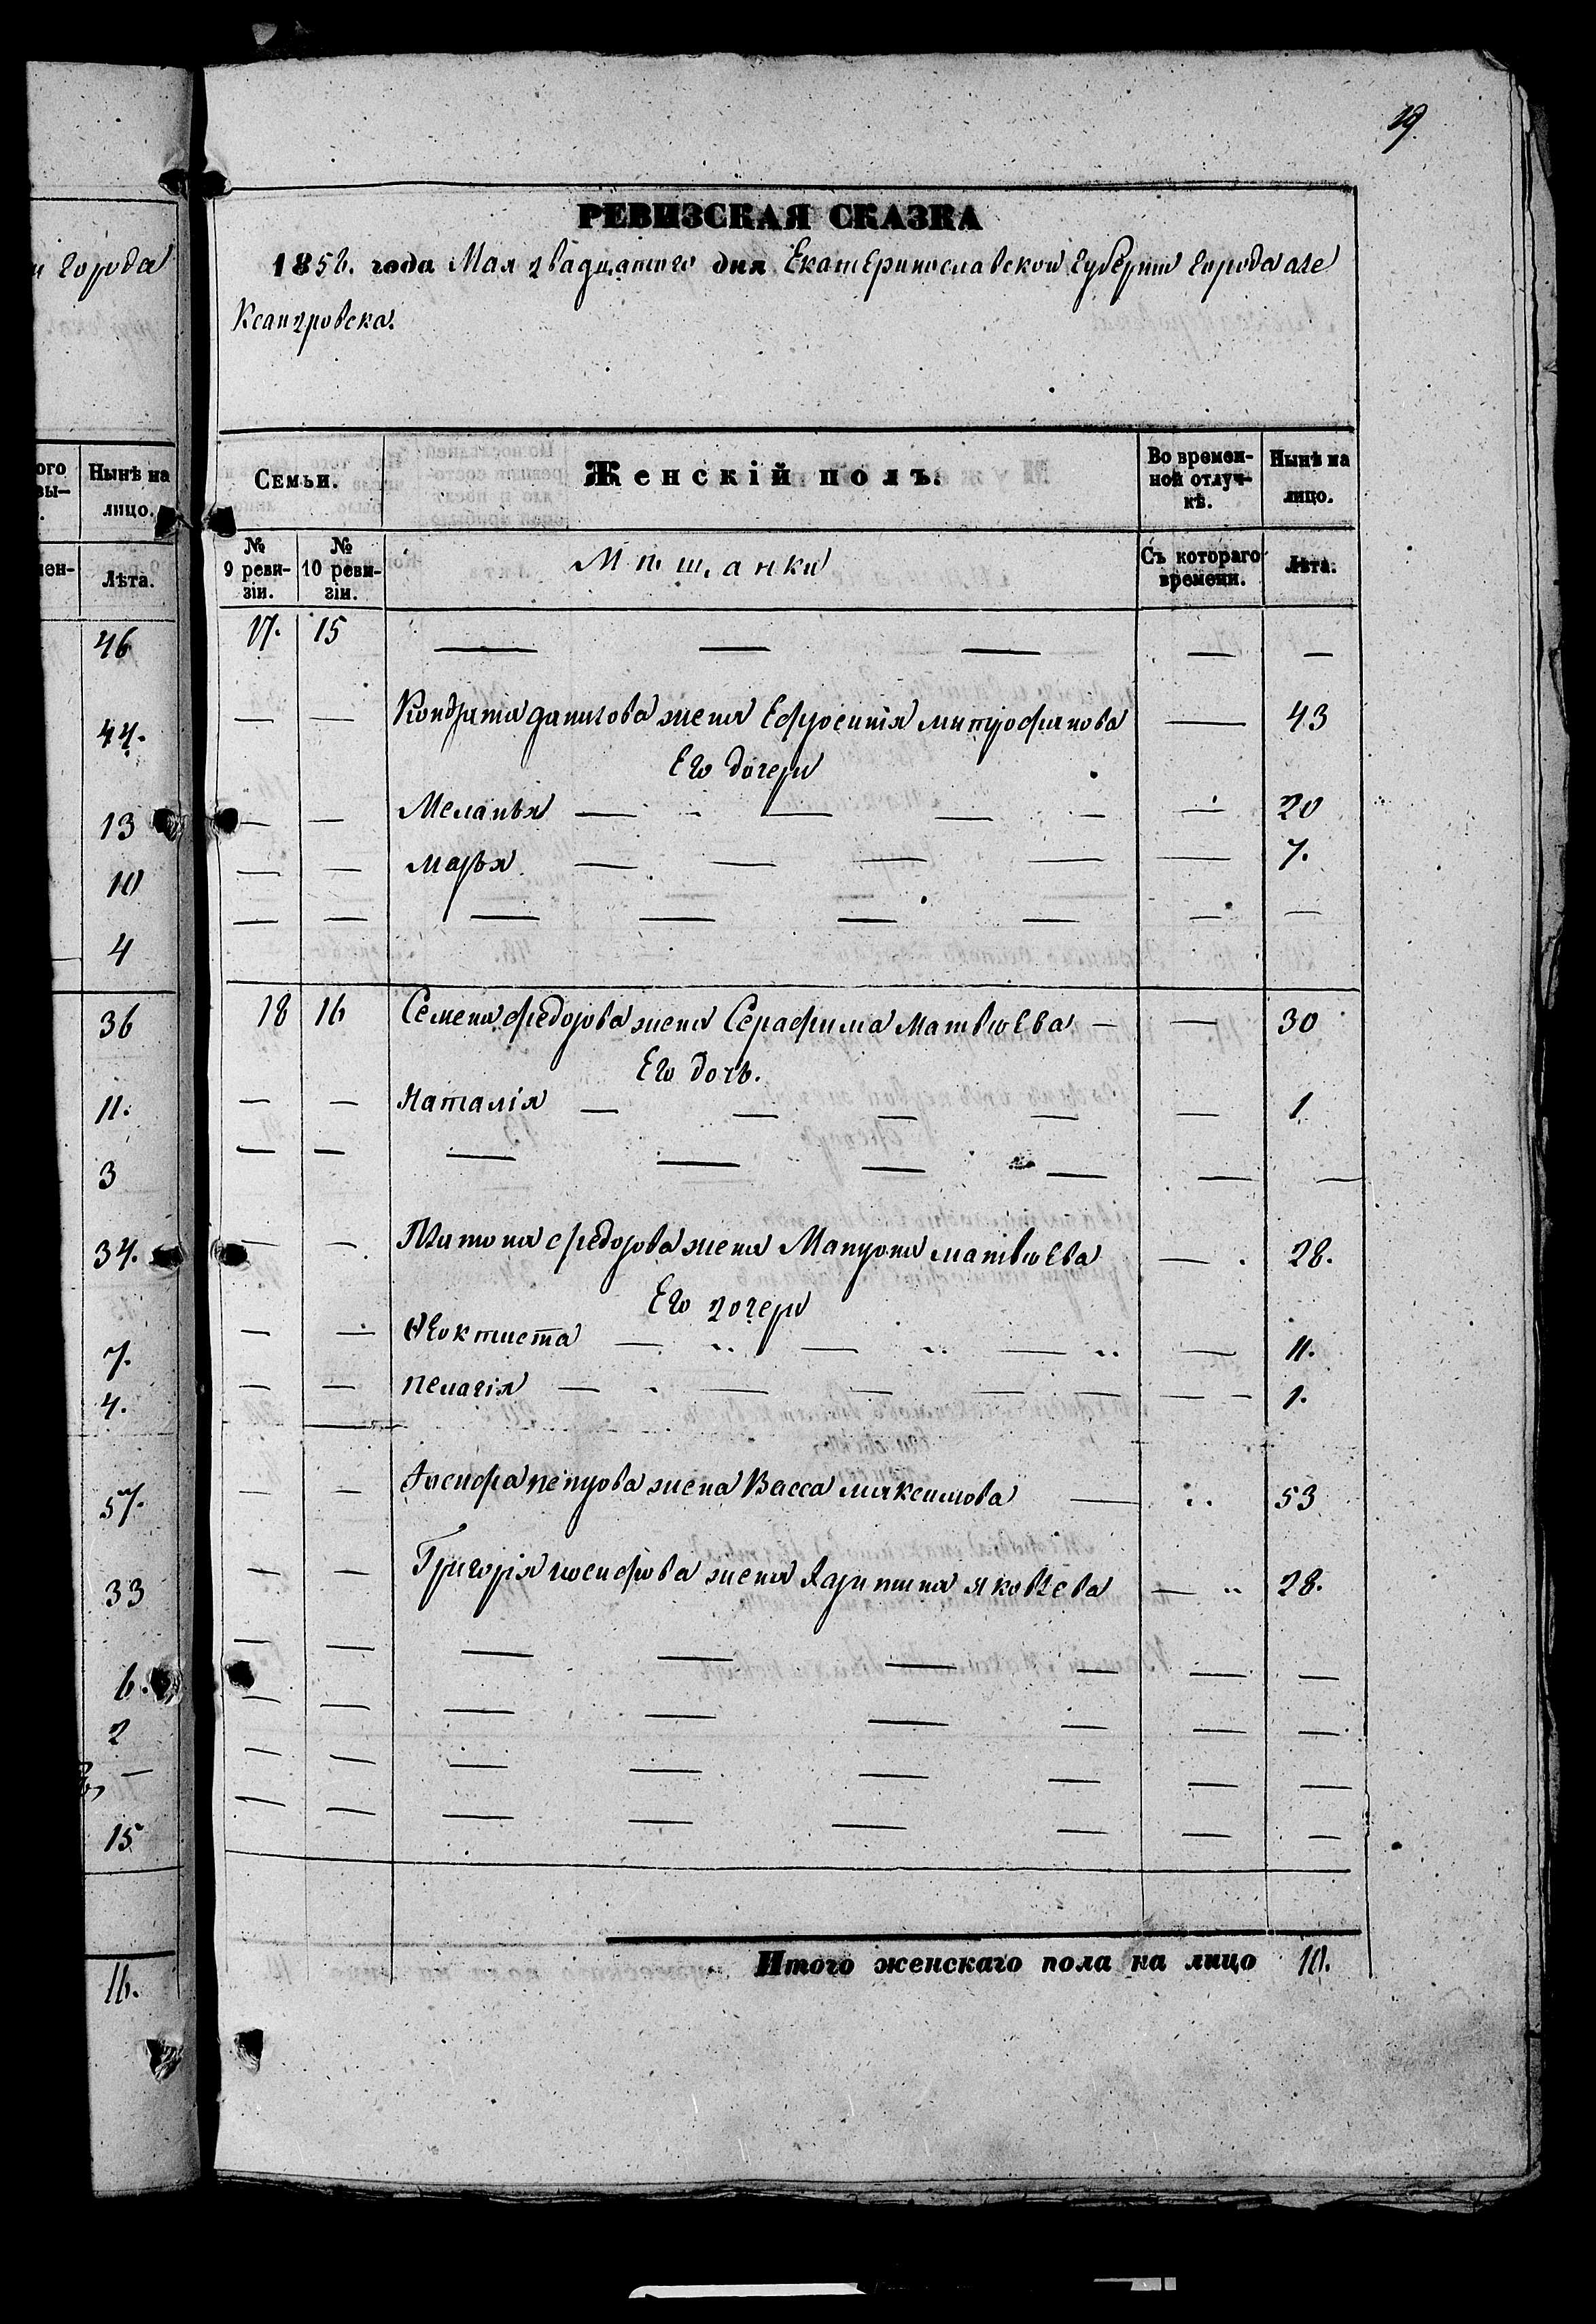 и города
ого
вы-
Нынѣ на
лицо.
мен-
Лѣта.
46
44.
13
10
4
36
11.
3
34.
7.
4.
57.
33
6.
2
15
16.
19
РЕВИЗСКАЯ СКАЗКА
1858. года Мая двадцатого дня Екатеринославской Губернии города але
Ксандровска.
Семьи.
Женскій полъ.
Во времен-
ной отлуч-
кѣ.
Нынѣ на
лицо.
№
9 реви-
зіи.
№
10 реви-
зіи.
Мѣщанки
Съ котораго
времени.
Лѣта.
17. 15 — — — — —
— — Кондрата данилова жена Ефросинія митрофанова — 43
Его дочери
— — Меланья — — — — — 20
— — марья — — — — — 7.
— — — — — — — —
18 16 Семена федорова жена Серафима Матвѣева — — 30
Его дочь.
— — Наталія — — — — — 1
— — — — — — — —
— — Платона федорова жена Матрона матвѣева — 28.
Его дочери
— — Ѳеоктиста — — — — 11.
— — пелагія — — — — — — — 1.
— — Іосифа петрова жена Васса максимова — 53
— — Григорія иосифова жена Харитина яковлева — 28.
— — — — — — — —
— — — — — — — —
— — — — — — — —
— — — — — — — —
Итого женскаго пола на лицо 10.